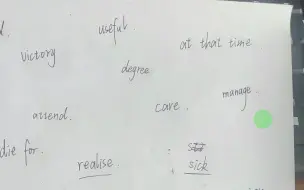 useful
victory
at that time
degree
manage.
care.
attend.
die for.
realise.
sick